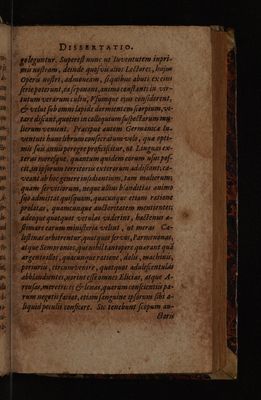 DISSERTATIO.
geleguntur. Superest nunc ut Iuventutem inpri-
mis nostram, deinde quosvis alios Lectores, hujus
Operis nostri, admoneam, siquibus abuti ex eius
serie poterunt, ea seponant, animo constanti in vir-
tutum verarum cultu, Usumque ejus considerent,
& velut sub omni lapide dormientem scorpium, vi-
tare discant, quoties in colloquium suspectarum mu-
lierum venient. Praecipue autem Germanicae Iu-
ventuti hunc librum consecratum volo, quae opti-
mis suis annis peregre proficiscitur, ut Linguas ex-
teras moresque, quantum quidem eorum usus pos-
cit, in ipsorum territoriis exterarum addiscant, ca-
veant ab hoc genere insidiantium, tam mulierum
quam servitiorum, neque ullius blanditias animo
suo admittat quisquam, quacunque etiam ratione
prolatas, quamcunque auctoritatem mentientes:
adeoque quotquot vetulas viderint, hactenus ae-
stimare earum ministeria velint, ut meras Cae-
lestinas arbitrentur, quotquot servos, Parmenonas,
atque Sempronios, qui nihil tantopere quaerant quā
argento illos, quacunque ratione, dolis, machinis,
perjuriis, circumvenire, quotquot adulescentulas
abblandientes, norint esse omnes Elicias, atque A-
reusas, meretrices & lenas, quarum conscientiis pa-
rum negotii faciat, etiam sanguine ipsorum sibi a-
liquid peculii conficere. Sic tenebunt scopum au-
ctoris